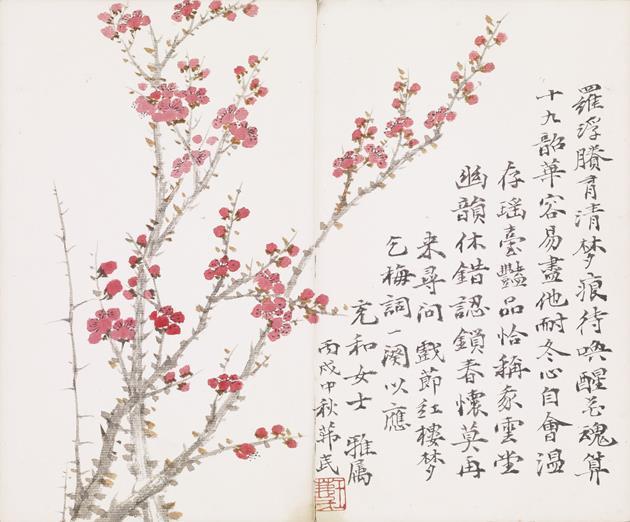 羅浮賸有清梦痕待喚醒花魂算
十九韶華容易盡他耐冬心自會温
存瑶臺豔品恰稱雲堂
幽韻休錯認鎖春懷莫再
来尋问 戲節红樓梦
乞梅詞一阕以應
充和女士 雅属
丙戌中秋茀民